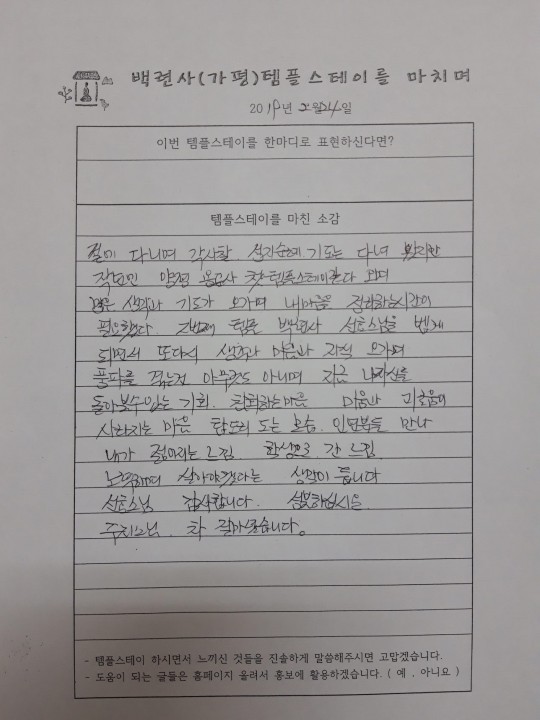 백련사(가평)템플스테이를 마치며
2019년 2월24일
이번 템플스테이를 한마디로 표현하신다면?
템플스테이를 마친 소감
절에 다니며 각사찰 성지순례 기도는 다녀
작년만 양평 용문사 첫템플스테이를 하며
많은 생각과 기도가 오가며 내마음을 정리하는시간이
필요했다. 2번째 템플 백련사 선호스님을 뵙게
되면서 또다시 생각과 마음과 지식 오가며
풍파를 겪는건 아무것도 아니며 지금 나자신을
돌아볼수있는 기회. 참회하는마음 미움과 괴로움이
사라지는 마음 탑도리 도는 모습. 인연복들 만나
내가 젊어지는 느낌. 학생으로 간 느낌
노력하며 살아야겠다는 생각이 듭니다
선호스님 감사합니다. 성불하십시요
주지스님. 차 잘마셨습니다.
- 템플스테이 하시면서 느끼신 것들을 진솔하게 말씀해주시면 고맙겠습니다.
- 도움이 되는 글들은 홈페이지 올려서 홍보에 활용하겠습니다. ( 예 , 아니요 )